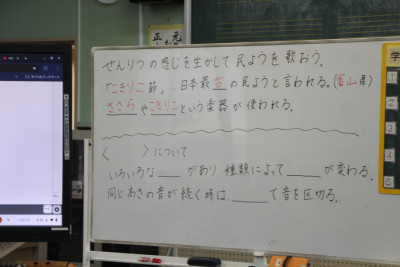 せんりつの感じを生かして民ようを歌おう。
「こきりこ節」…日本最古の民ようと言われる。(富山県)
ささらやこきりこという楽器が使われる。
〈　　　〉について
いろいろな____があり、種類によって____が変わる。
同じ高さの音が続く時は、____で音を区切る。
学
1
2
3
4
5